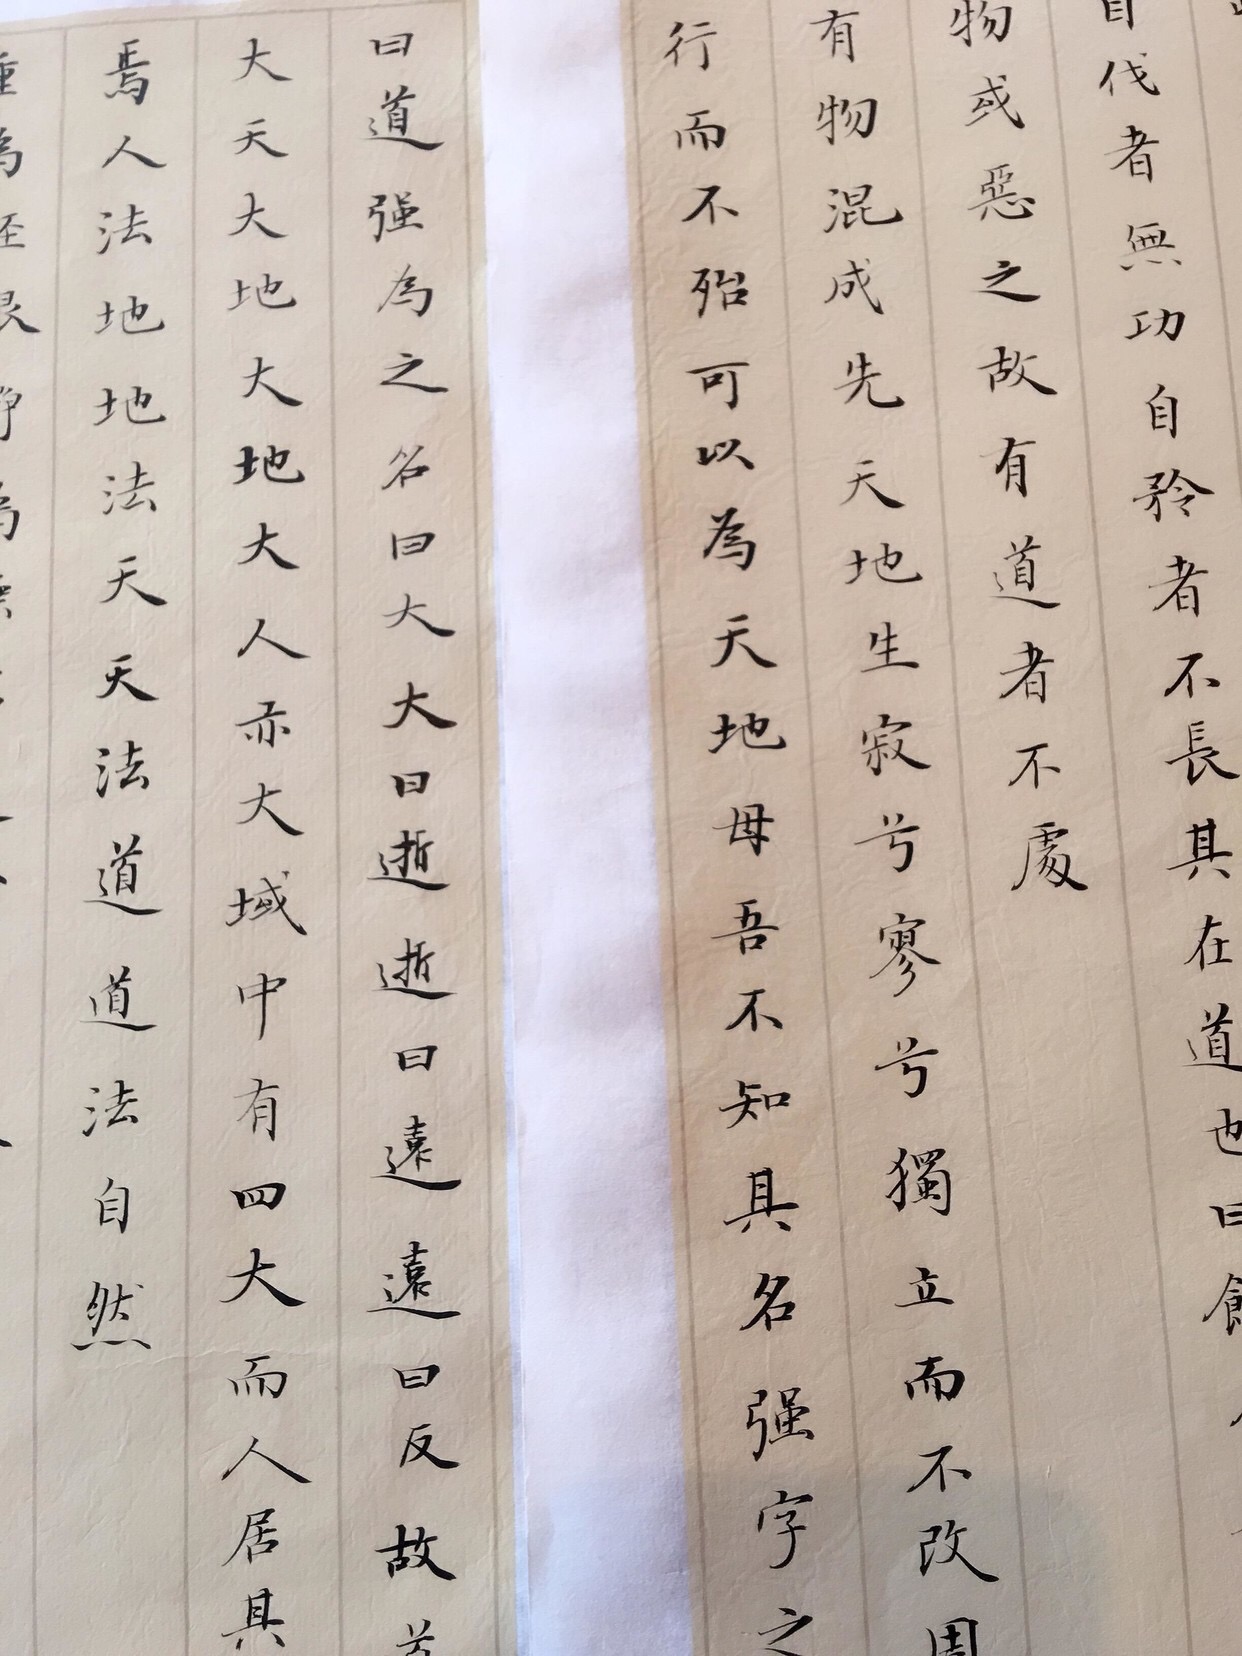 自伐者無功自矜者不長其在道也曰餘
物或惡之故有道者不處
有物混成先天地生寂兮寥兮獨立而不改周
行而不殆可以為天地母吾不知其名强字之
曰道强為之名曰大大曰逝逝曰遠遠曰反故
大天大地大地大人亦大域中有四大而人居其
焉人法地地法天天法道道法自然